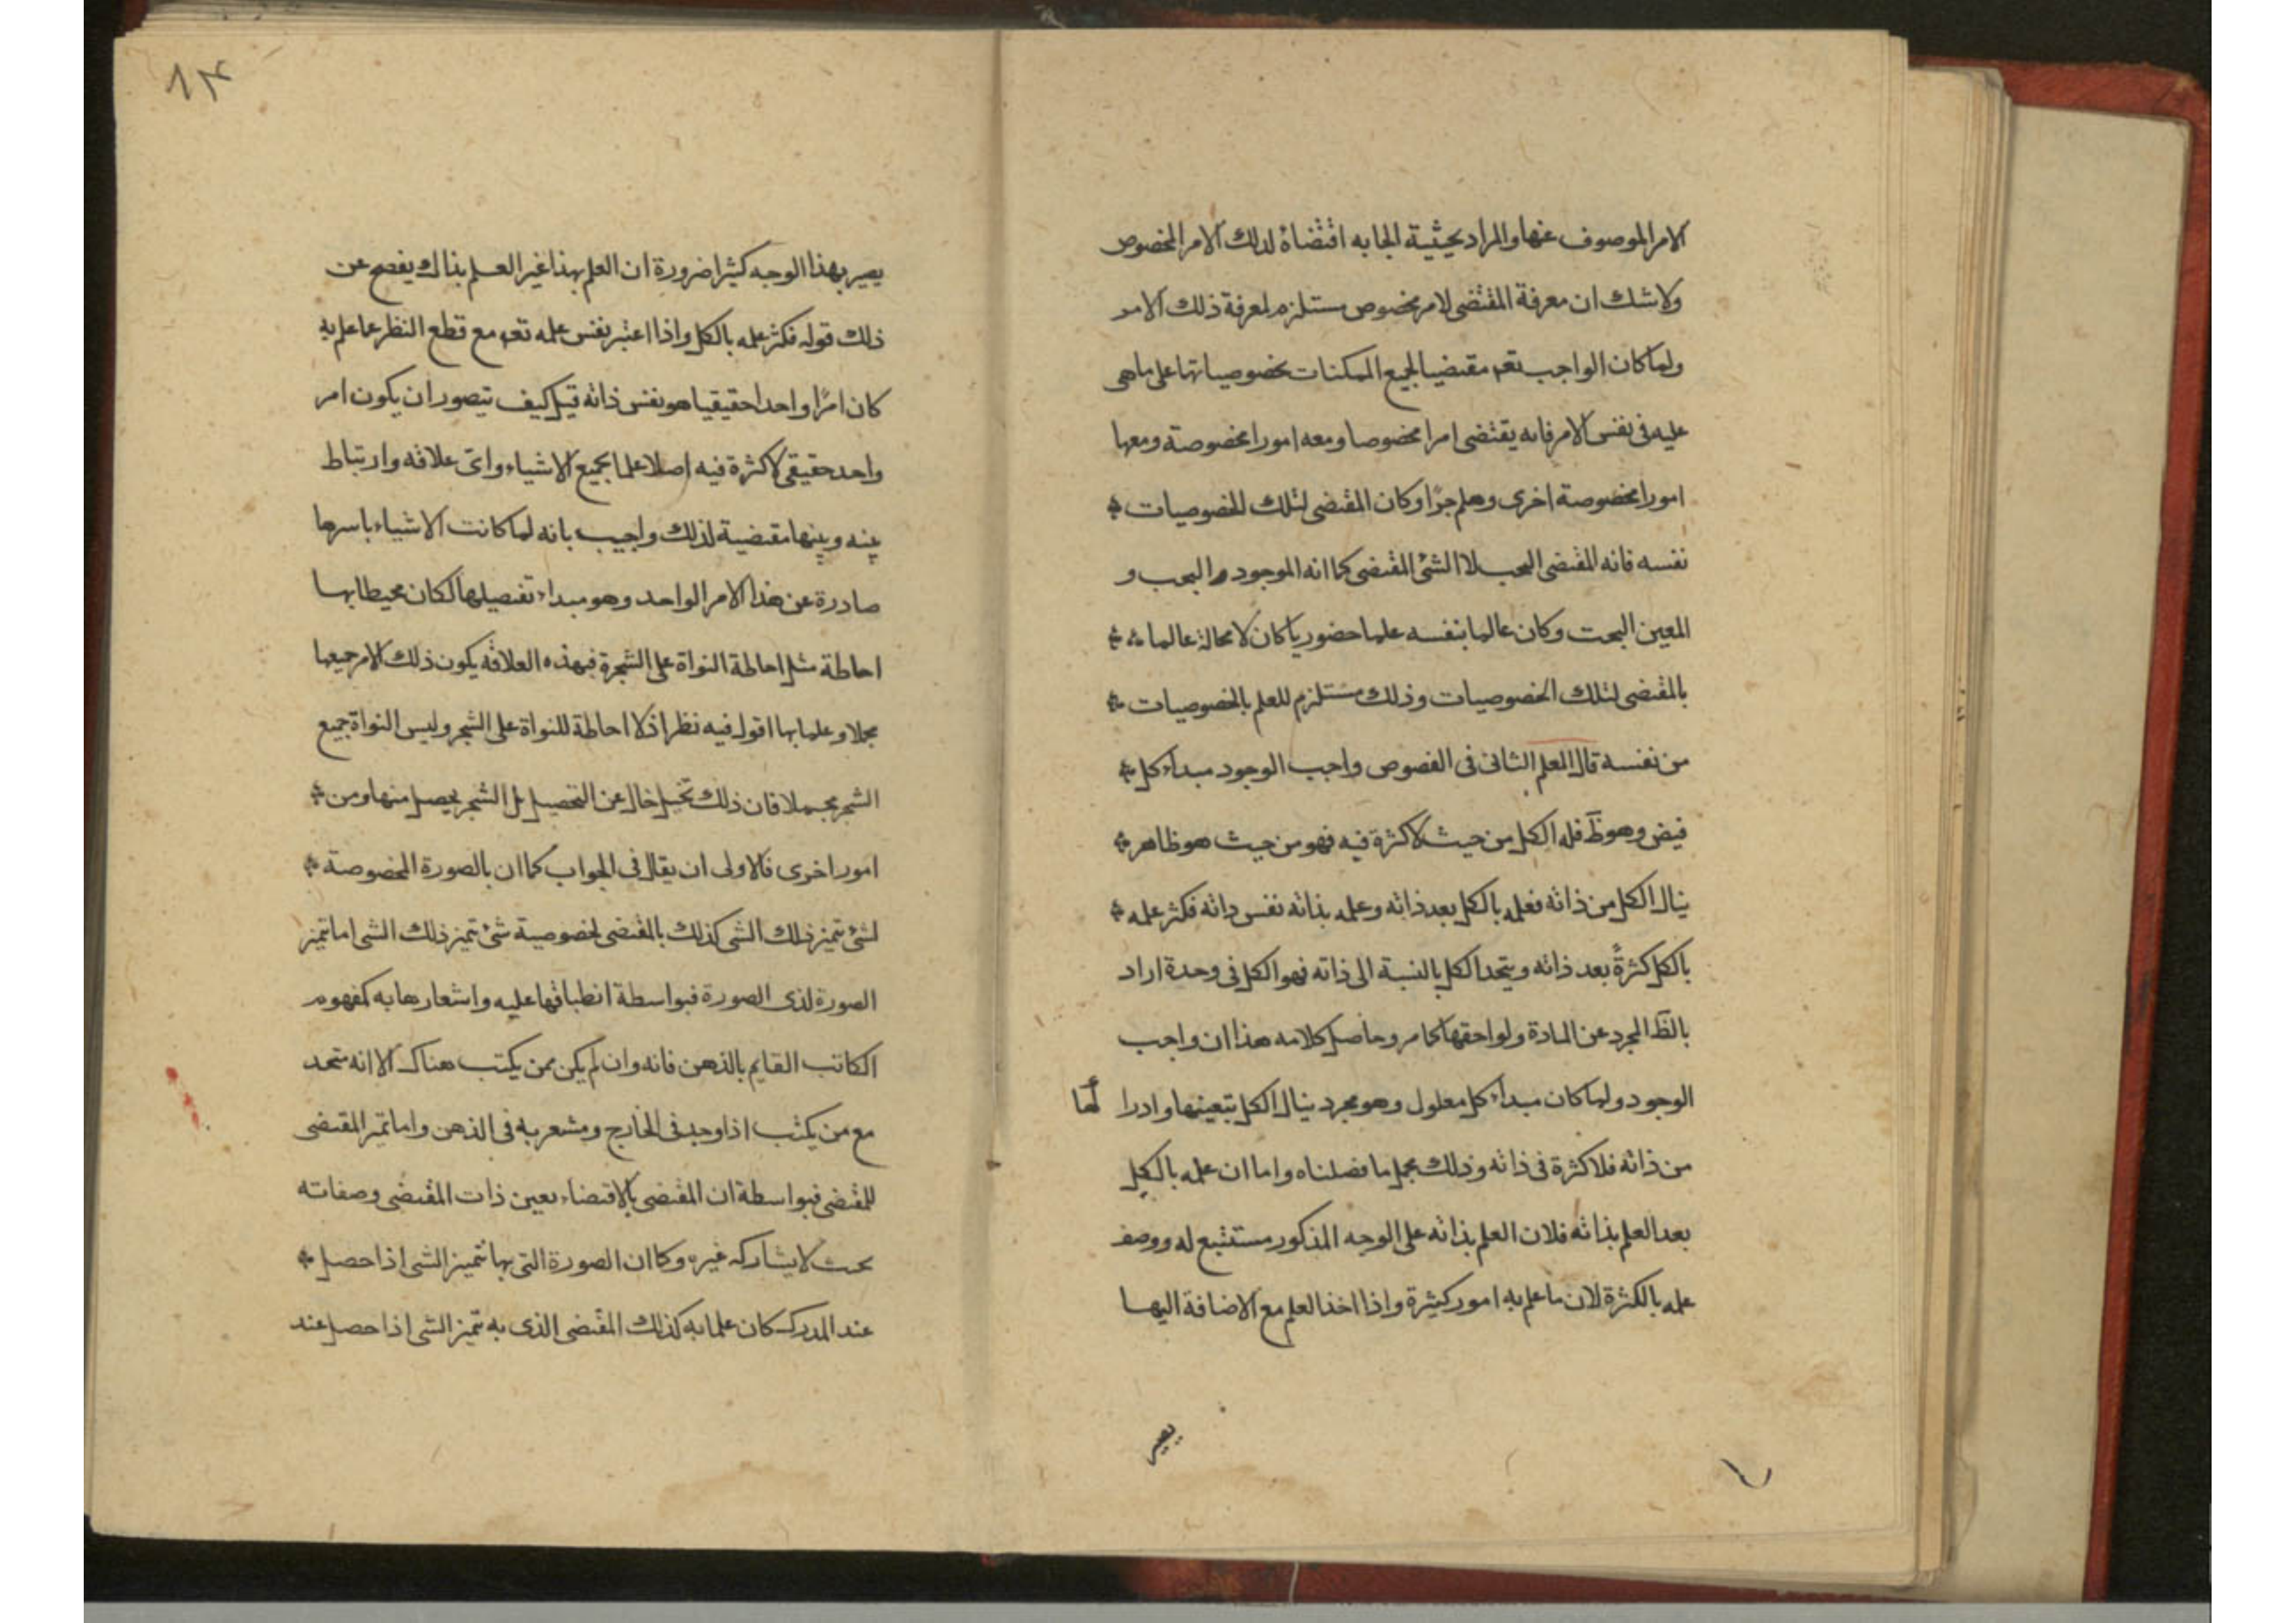 الامر الموصوف عنها والمراد بحيثية الجابه اقتضاؤه لذلك الامر المخصوص
ولاشك ان معرفة المقتضى لامر مخصوص مستلزم لمعرفة ذلك الامر
ولما كان الواجب تعم مقتضيا لجميع الممكنات بخصوصياتها على ماهى
عليه فى نفس الامر فانه يقتضى امرا مخصوصا ومعه امورا مخصوصة ومعها
امورا مخصوصة اخرى وهلم جرًا وكان المقتضى لتلك الخصوصيات
نفسه فانه المقتضى البحب لا الشئ المقتضى كما انه الموجود البحب و
المعين البحت وكان عالما بنفسه علما حضوريا كان لا محالة عالما
بالمقتضى لتلك الخصوصيات وذلك مستلزم للعلم بالخصوصيات
من نفسه قال المعلم الثانى فى الفصوص واجب الوجود مبداء كل
فيض وهو ظَ فله الكل من حيث لاكثرة فيه فهو من حيث هو ظاهر
ينال الكل من ذاته فعلمه بالكل بعد ذاته وعلمه بذاته نفس ذاته فكثر علمه
بالكل كثرةً بعد ذاته ويتحد الكل بالنسبة الى ذاته فهو الكل فى وحدة اراد
بالظَ المجرد عن المادة ولواحقها كما مر وحاصل كلامه هذا ان واجب
الوجود ولما كان مبداء كل معلول وهو مجرد ينال الكل بتعينها وادرا لها
من ذاته فلاكثرة فى ذاته وذلك مجمل ما فصلناه واما ان علمه بالكل
بعد العلم بذاته فلان العلم بذاته على الوجه المذكور مستتبع له ووصف
علمه بالكثرة لان ما علم به امور كثيرة واذا اخذ العلم مع الاضافة اليها
يصير
١٣
يصير بهذا الوجه كثيرا ضرورة ان العلم بهذا غير العلم بذاك يفصح عن
ذلك قوله فكثر علمه بالكل واذا اعتبر نفس علمه تعم مع قطع النظر عما علم به
كان امرًا واحدا حقيقيا هو نفس ذاته قيل كيف يتصور ان يكون امر
واحد حقيقى لاكثرة فيه اصلا علما بجميع الاشياء واى علاقه وارتباط
بينه وبينها مقتضية لذلك واجيب بانه لما كانت الاشياء باسرها
صادرة عن هذا الامر الواحد وهو مبداء تفصيلها لكان محيطا بها
احاطة مثل احاطة النواة على الشجرة فبهذه العلاقه يكون ذلك الامر جميعها
مجملا وعلما بها اقول فيه نظر اذ لا احاطة للنواة على الشجر وليس النواة جميع
الشجر مجملا فان ذلك تخيل خال عن التحصيل بل الشجر يحصل منها ومن
امور اخرى فالاولى ان يقال فى الجواب كما ان بالصورة المخصوصة
لشئ يتميز ذلك الشى كذلك بالمقتضى لخصوصية شئ يتميز ذلك الشى اما تميز
الصورة لذى الصورة فبواسطة انطباقها عليه واشعارها به كمفهوم
الكاتب القايم بالذهن فانه وان لم يكن ممن يكتب هناك الا انه متحد
مع من يكتب اذا وجد فى الخارج ومشعر به فى الذهن واما تميز المقتضى
للمقتضى فبواسطة ان المقتضى بالاقتضاء يعين ذات المقتضى وصفاته
بحث لايشاركه غيره وكما ان الصورة التى بها تتميز الشى اذا حصل
عند المدرك كان علما به كذلك المقتضى الذى به تتميز الشى اذا حصل عند